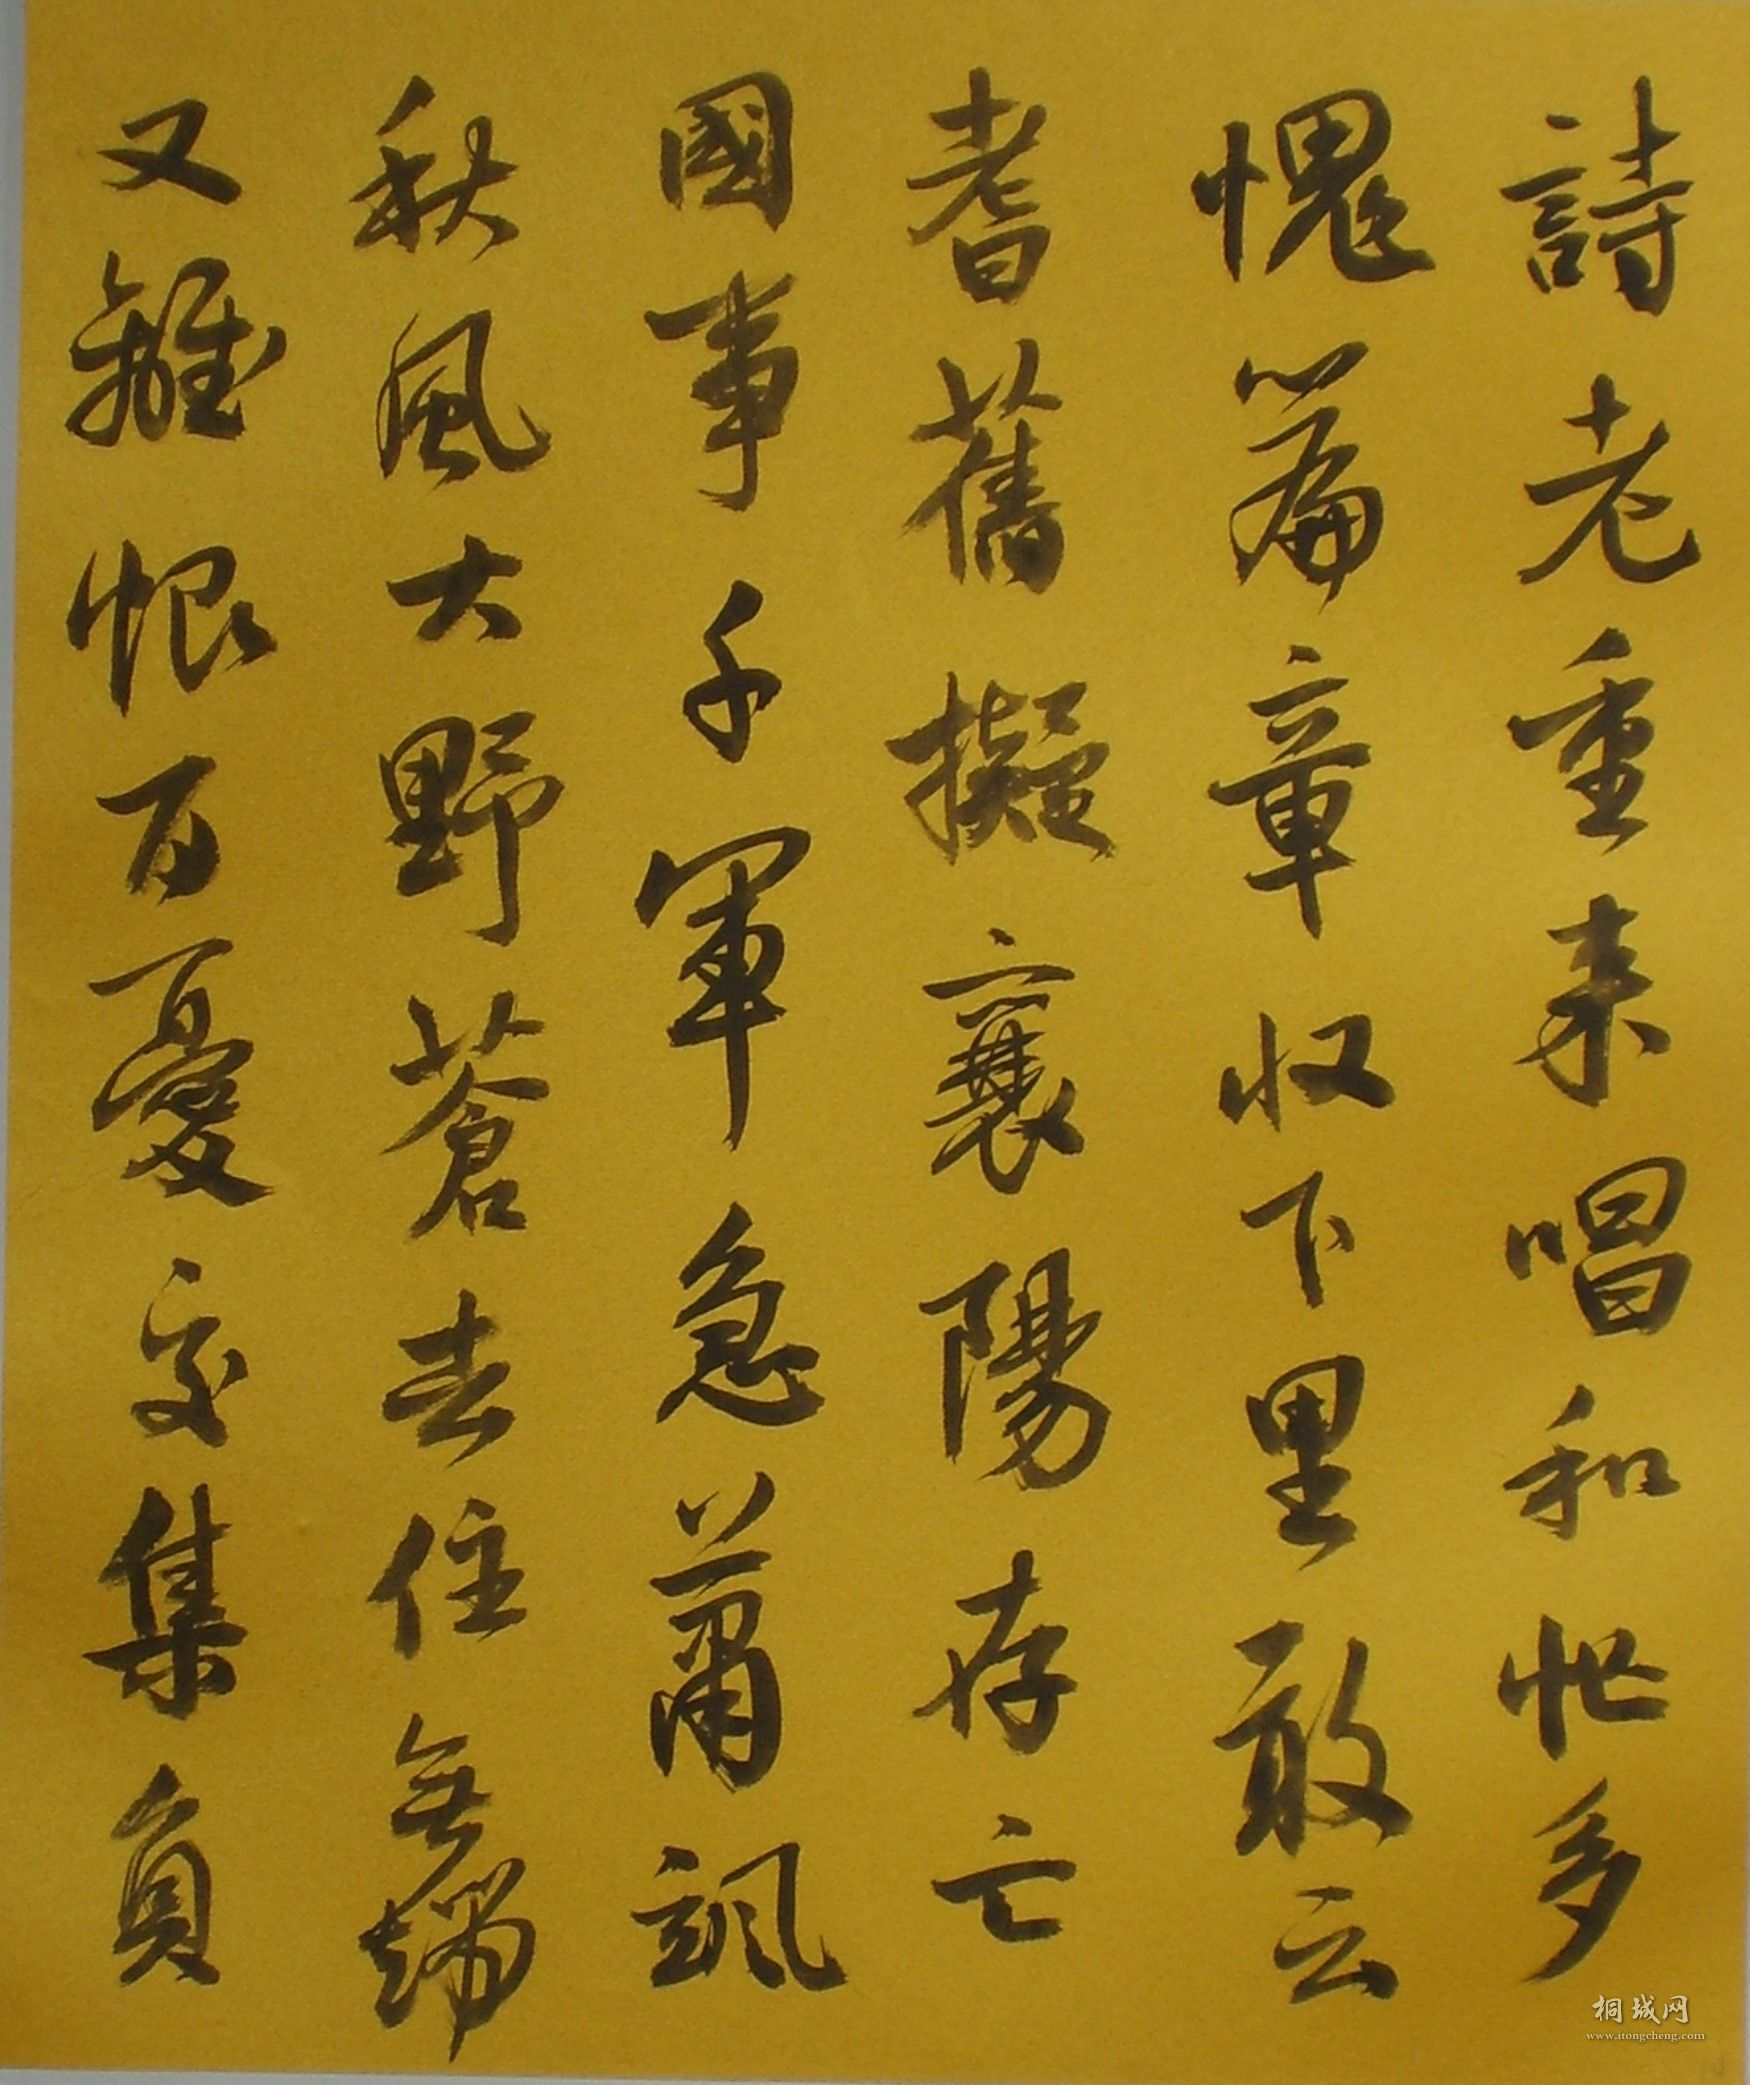 詩老重来唱和忙多
愧篇章収下里敢云
耆舊擬襄陽存亡
國事千軍急蕭颯
秋風大野蒼去住無端
又離恨百憂交集負
桐城网
www.itongcheng.com